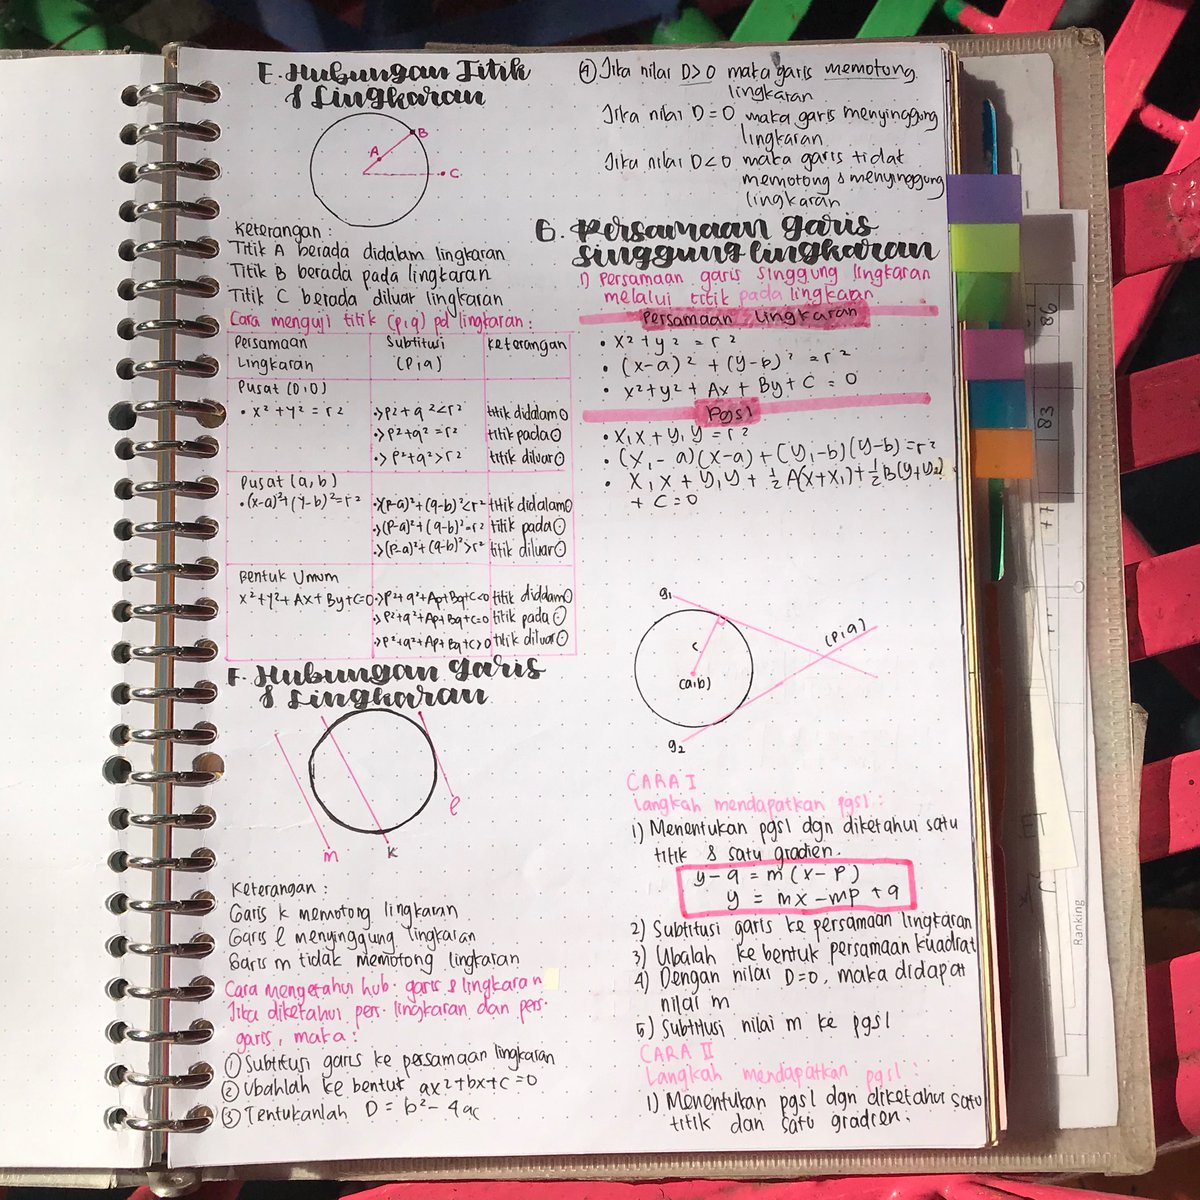 E. Hubungan Titik
& Lingkaran
B
A
C
Keterangan :
Titik A berada didalam lingkaran
Titik B berada pada lingkaran
Titik C berada diluar lingkaran
Cara menguji titik (p,q) pd lingkaran :
Persamaan Lingkaran
Subtitusi (p,q)
Keterangan
Pusat (0,0)
• x² + y² = r²
•> p² + q² < r² titik didalam O
•> p² + q² = r² titik pada O
•> p² + q² > r² titik diluar O
Pusat (a,b)
• (x-a)² + (y-b)² = r²
•> (p-a)² + (q-b)² < r² titik didalam O
•> (p-a)² + (q-b)² = r² titik pada O
•> (p-a)² + (q-b)² > r² titik diluar O
Bentuk Umum
x² + y² + Ax + By + C = 0
•> p² + q² + Ap + Bq + C < 0 titik didalam O
•> p² + q² + Ap + Bq + C = 0 titik pada O
•> p² + q² + Ap + Bq + C > 0 titik diluar O
F. Hubungan Garis
& Lingkaran
m
k
l
Keterangan :
Garis k memotong lingkaran
Garis l menyinggung lingkaran
Garis m tidak memotong lingkaran
Cara mengetahui hub. garis & lingkaran
Jika diketahui pers. lingkaran dan pers.
garis, maka :
① Subtitusi garis ke persamaan lingkaran
② Ubahlah ke bentuk ax² + bx + c = 0
③ Tentukanlah D = b² - 4ac
④ Jika nilai D > 0 maka garis memotong
lingkaran
Jika nilai D = 0 maka garis menyinggung
lingkaran
Jika nilai D < 0 maka garis tidak
memotong & menyinggung
lingkaran
G. Persamaan Garis
Singgung lingkaran
1) Persamaan garis singgung lingkaran
melalui titik pada lingkaran
Persamaan Lingkaran
• x² + y² = r²
• (x-a)² + (y-b)² = r²
• x² + y² + Ax + By + C = 0
Pgsl
• x₁x + y₁y = r²
• (x₁-a)(x-a) + (y₁-b)(y-b) = r²
• x₁x + y₁y + ½A(x+x₁) + ½B(y+y₁)
+ C = 0
g₁
(p,q)
(a,b)
g₂
CARA I
Langkah mendapatkan pgsl :
1) Menentukan pgsl dgn diketahui satu
titik & satu gradien.
y - q = m (x - p)
y = mx - mp + q
2) Subtitusi garis ke persamaan lingkaran
3) Ubalah ke bentuk persamaan kuadrat
4) Dengan nilai D = 0, maka didapat
nilai m
5) Subtitusi nilai m ke pgsl
CARA II
Langkah mendapatkan pgsl :
1) Menentukan pgsl dgn diketahui satu
titik dan satu gradien.
86
83
77
Ranking